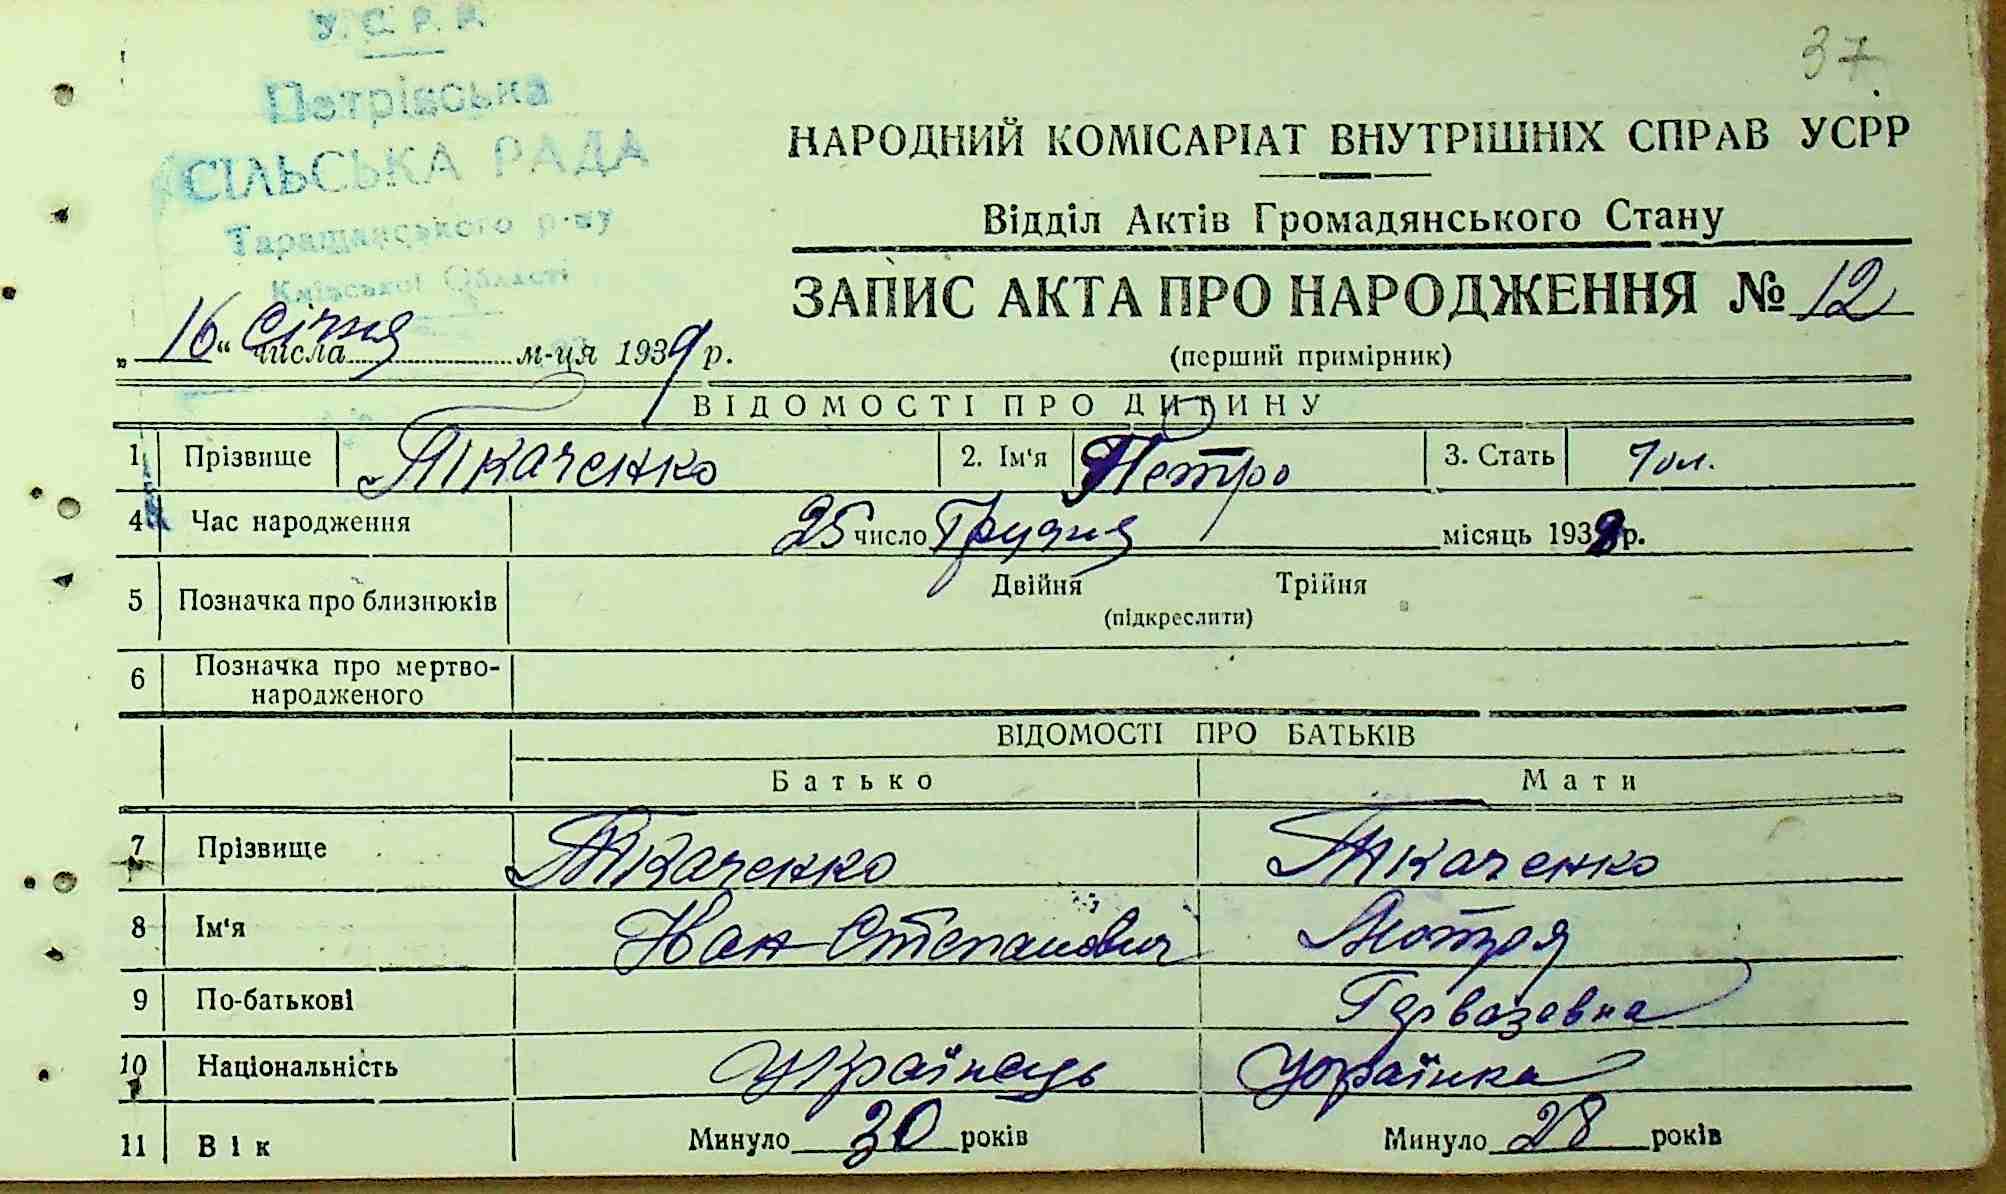 У. С. Р. Р.
37
Петрівська
СІЛЬСЬКА РАДА
Таращанського р-ну
Київської Області
НАРОДНИЙ КОМІСАРІАТ ВНУТРІШНІХ СПРАВ УСРР
Відділ Актів Громадянського Стану
ЗАПИС АКТА ПРО НАРОДЖЕННЯ № 12
„16“ числа Січня м-ця 1939 р.
(перший примірник)
ВІДОМОСТІ ПРО ДИТИНУ
1 Прізвище Ткаченко 2. Ім'я Петро 3. Стать чол.
4 Час народження 25 число Грудня місяць 1938 р.
5 Позначка про близнюків Двійня Трійня
(підкреслити)
6 Позначка про мертво-
народженого
ВІДОМОСТІ ПРО БАТЬКІВ
Батько Мати
7 Прізвище Ткаченко Ткаченко
8 Ім'я Іван Степанович Мотря
9 По-батькові Гервазевна
10 Національність Українець Українка
11 Вік Минуло 30 років Минуло 28 років